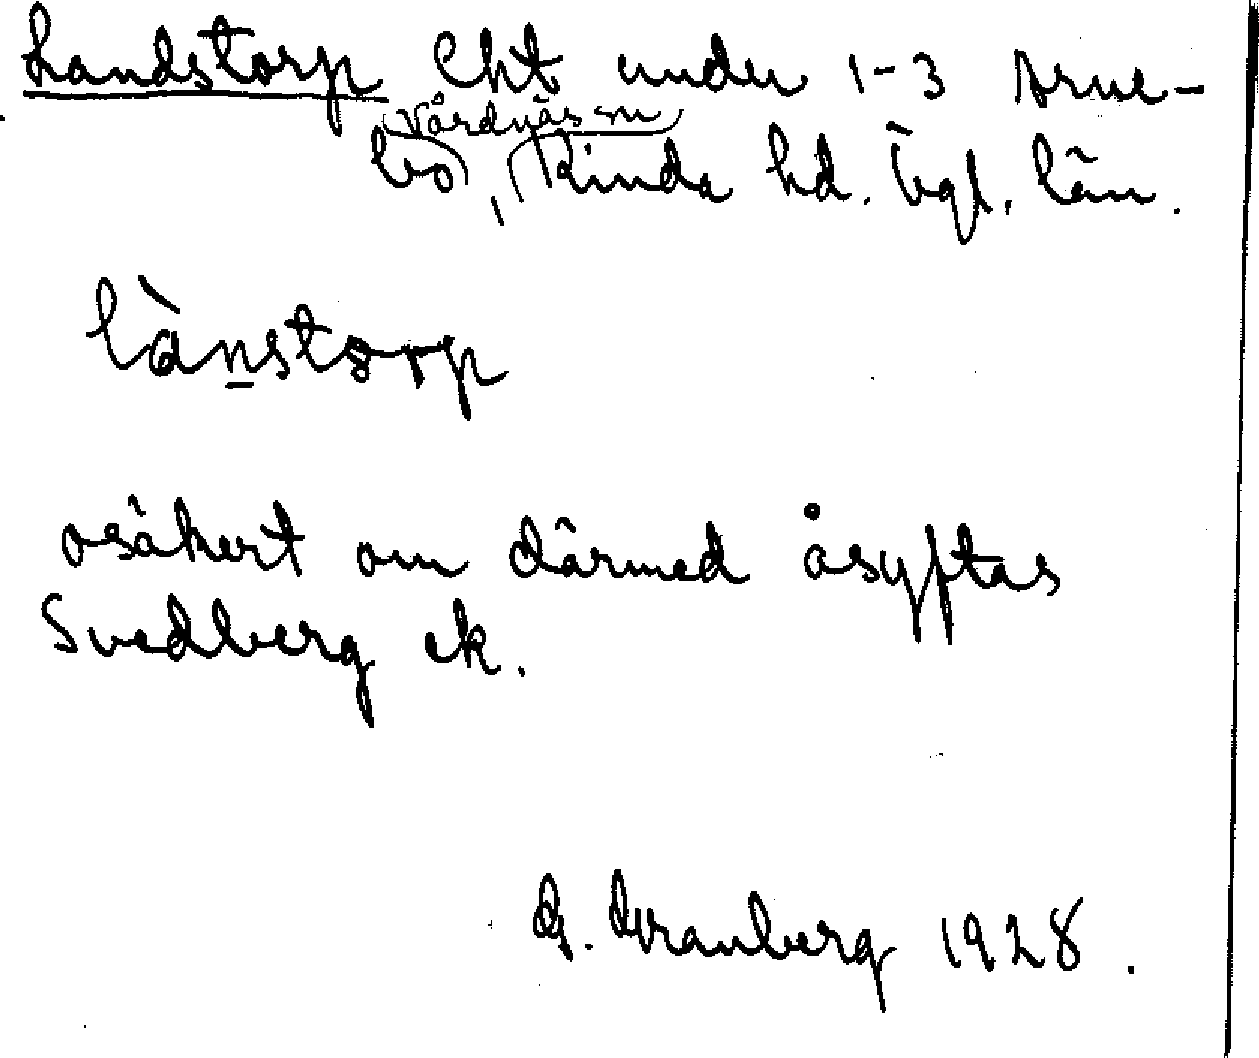 Landstorp Lht under 1-3 Arne-
Vårdnäs sn
bo, Kinda hd. Ögl. län.
lànstorp
osäkert om därmed åsyftas
Svedberg ek.
G. Granberg 1928.